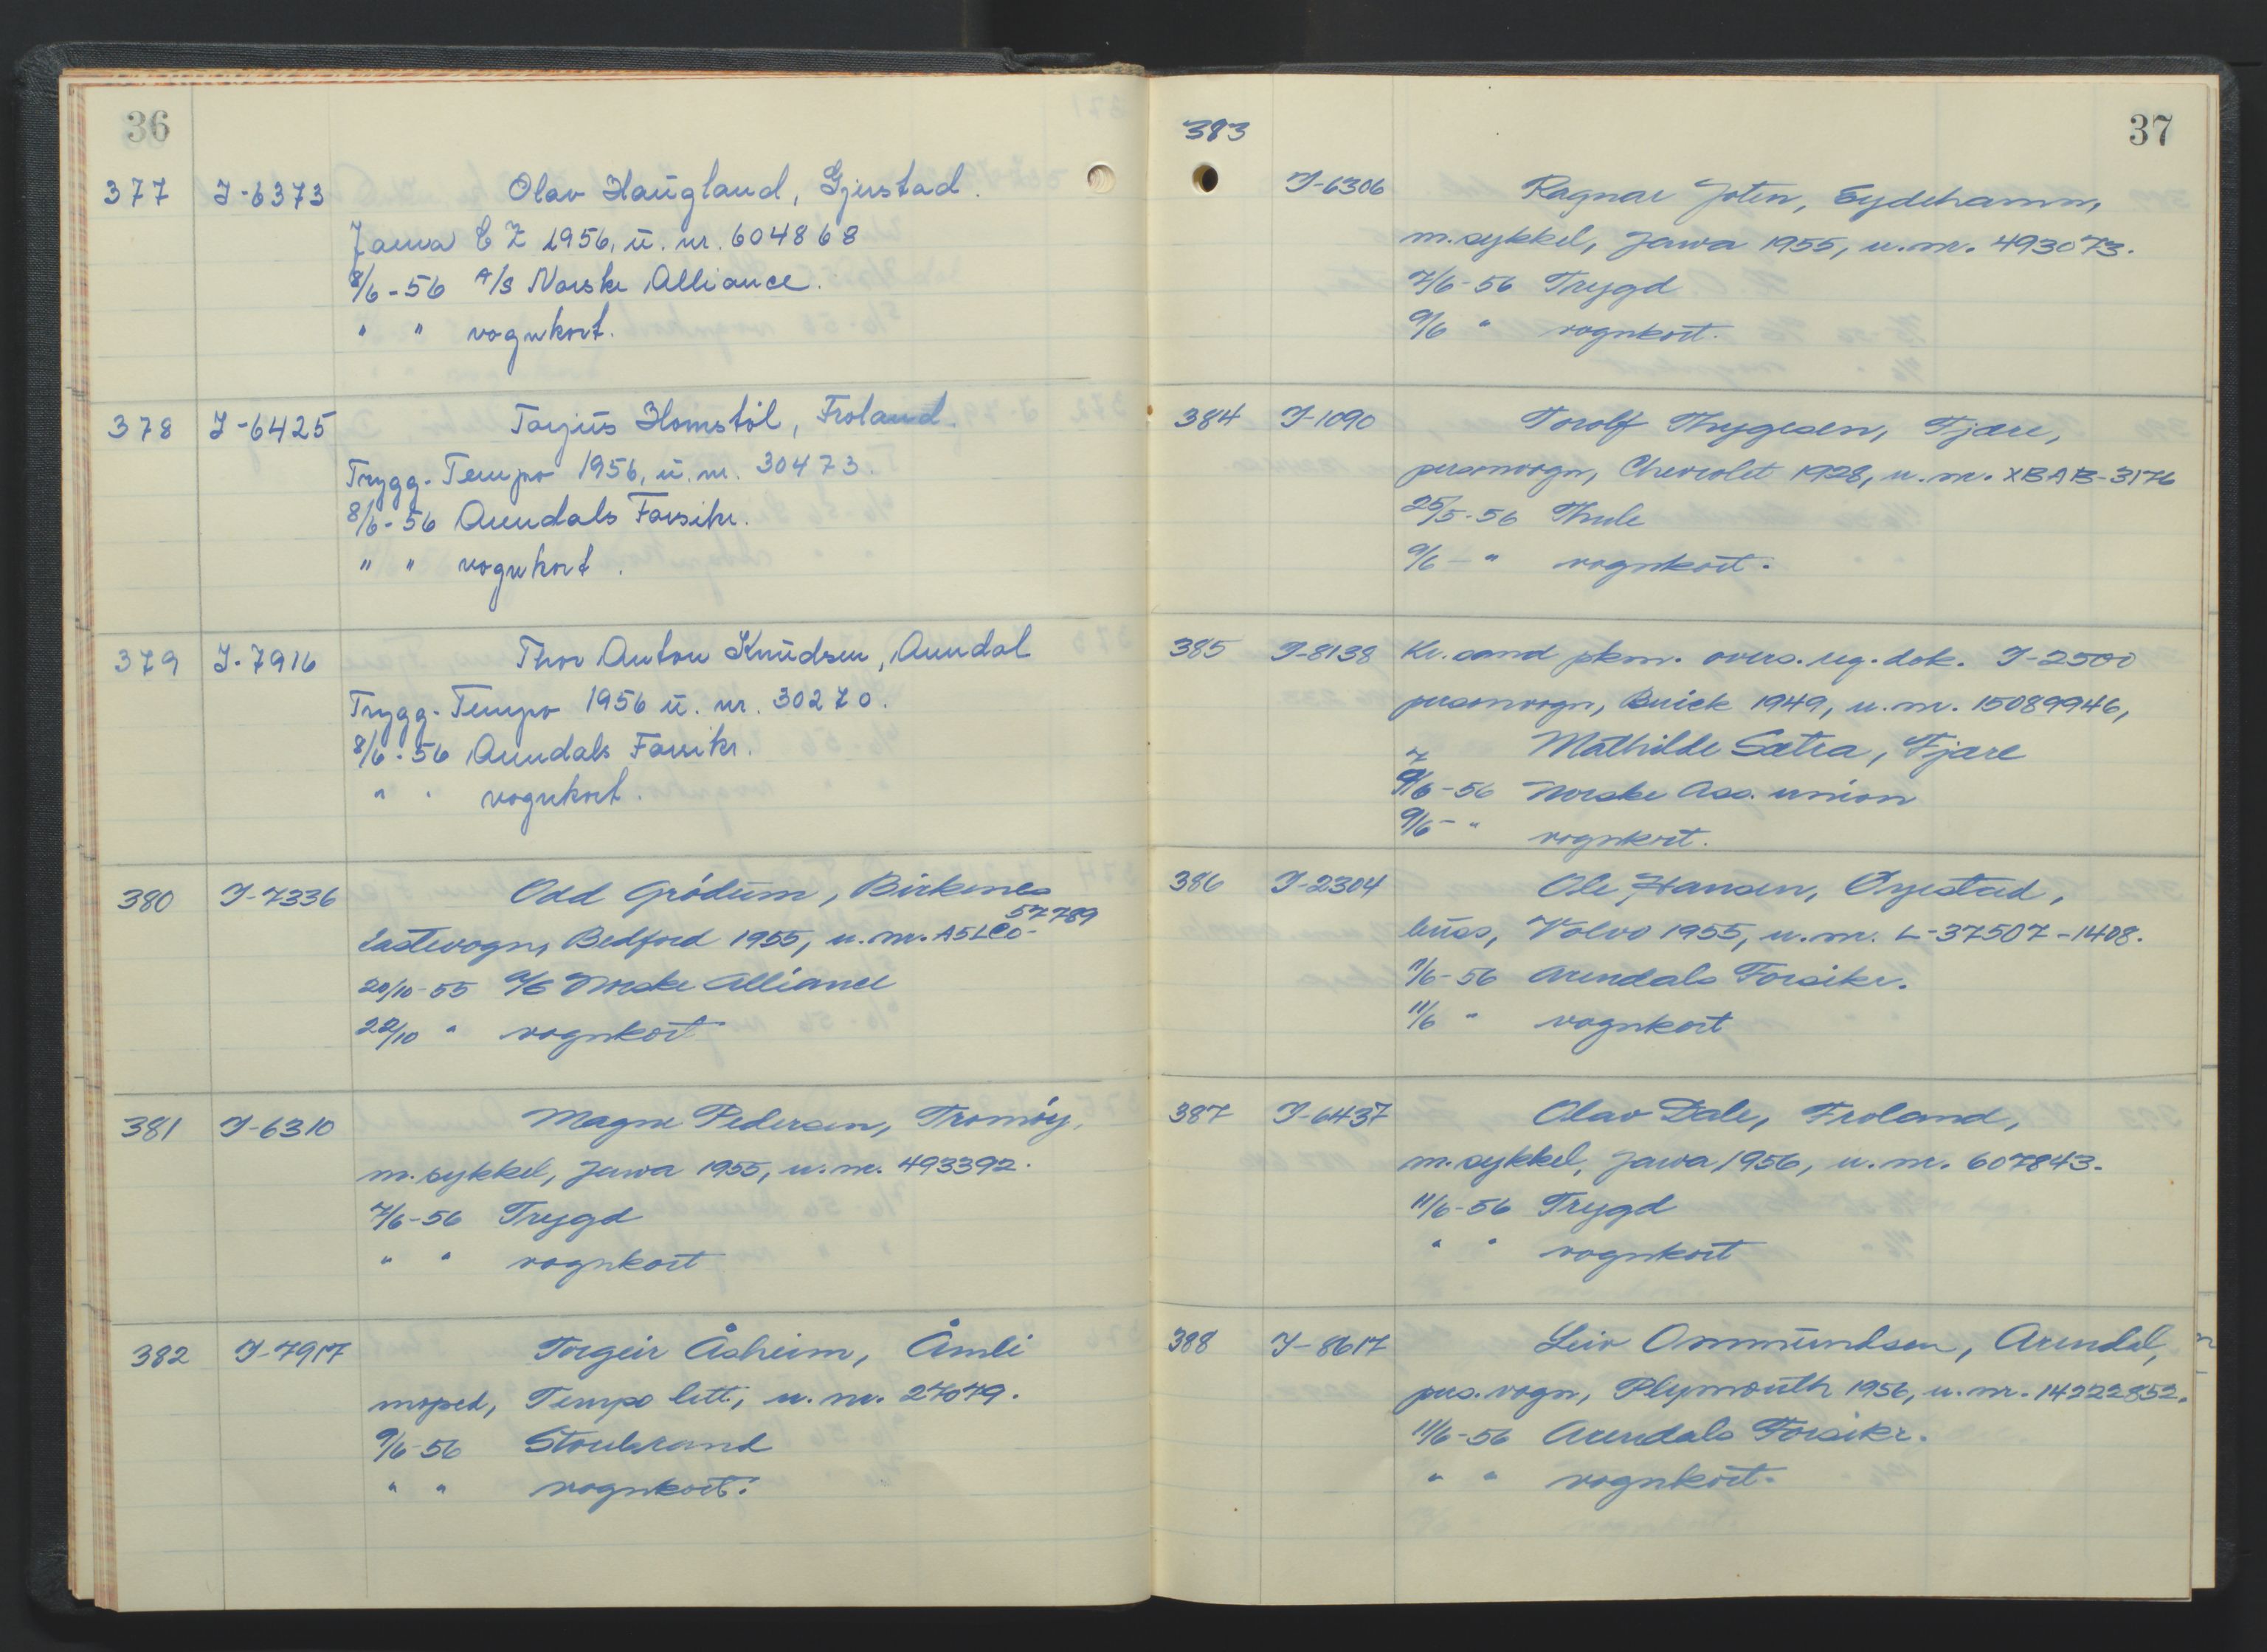 36
377 I-6373 Olav Haugland, Gjerstad.
Jawa CZ 1956, u. nr. 604868
8/6-56 A/S Norske Alliance.
" " vognkort.
378 I-6425 Tarjus Homstöl, Froland.
Trygg-Tempo 1956, u. nr. 30473.
8/6-56 Arendals Forsikr.
" " vognkort.
379 I-7916 Thor Anton Knudsen, Arendal
Trygg-Tempo 1956 u. nr. 30270.
8/6-56 Arendals Forsikr.
" " vognkort.
380 I-7336 Odd Grödum, Birkenes
57789
Lastevogn, Bedford 1955, u. nr. A5LCO-
20/10-55 A/S Norske Alliance
22/10 " vognkort
381 I-6310 Magne Pedersen, Tromöy,
m.sykkel, Jawa 1955, u. nr. 493392.
7/6-56 Trygd
" " vognkort
382 I-7917 Torgeir Åsheim, Åmli
moped, Tempo lett, u. nr. 27079.
9/6-56 Storebrand
" " vognkort.
37
383
I-6306 Ragnar Joten, Eydehamn,
m.sykkel, Jawa 1955, u. nr. 493073.
7/6-56 Trygd
9/6 " vognkort.
384 I-1090 Torolf Thygesen, Fjære,
personvogn, Chevrolet 1928, u. nr. XBAB-3176
25/5-56 Thule
9/6 - " vognkort.
385 I-8138 Kr.sand pkm. overs. reg. dok. I-2500
personvogn, Buick 1949, u. nr. 15089946,
Mathilde Sætra, Fjære
7
9/6-56 Norske Ass. union
9/6- " vognkort.
386 I-2304 Ole Hansen, Öyestad,
buss, Volvo 1955, u. nr. L-37507-1408.
1/6-56 Arendals Forsikr.
11/6 " vognkort
387 I-6437 Olav Dale, Froland,
m.sykkel, Jawa 1956, u. nr. 607843.
11/6-56 Trygd
" " vognkort
388 I-8617 Leiv Ommundsen, Arendal,
pers.vogn, Plymouth 1956, u. nr. 14222852.
11/6-56 Arendals Forsikr.
" " vognkort.